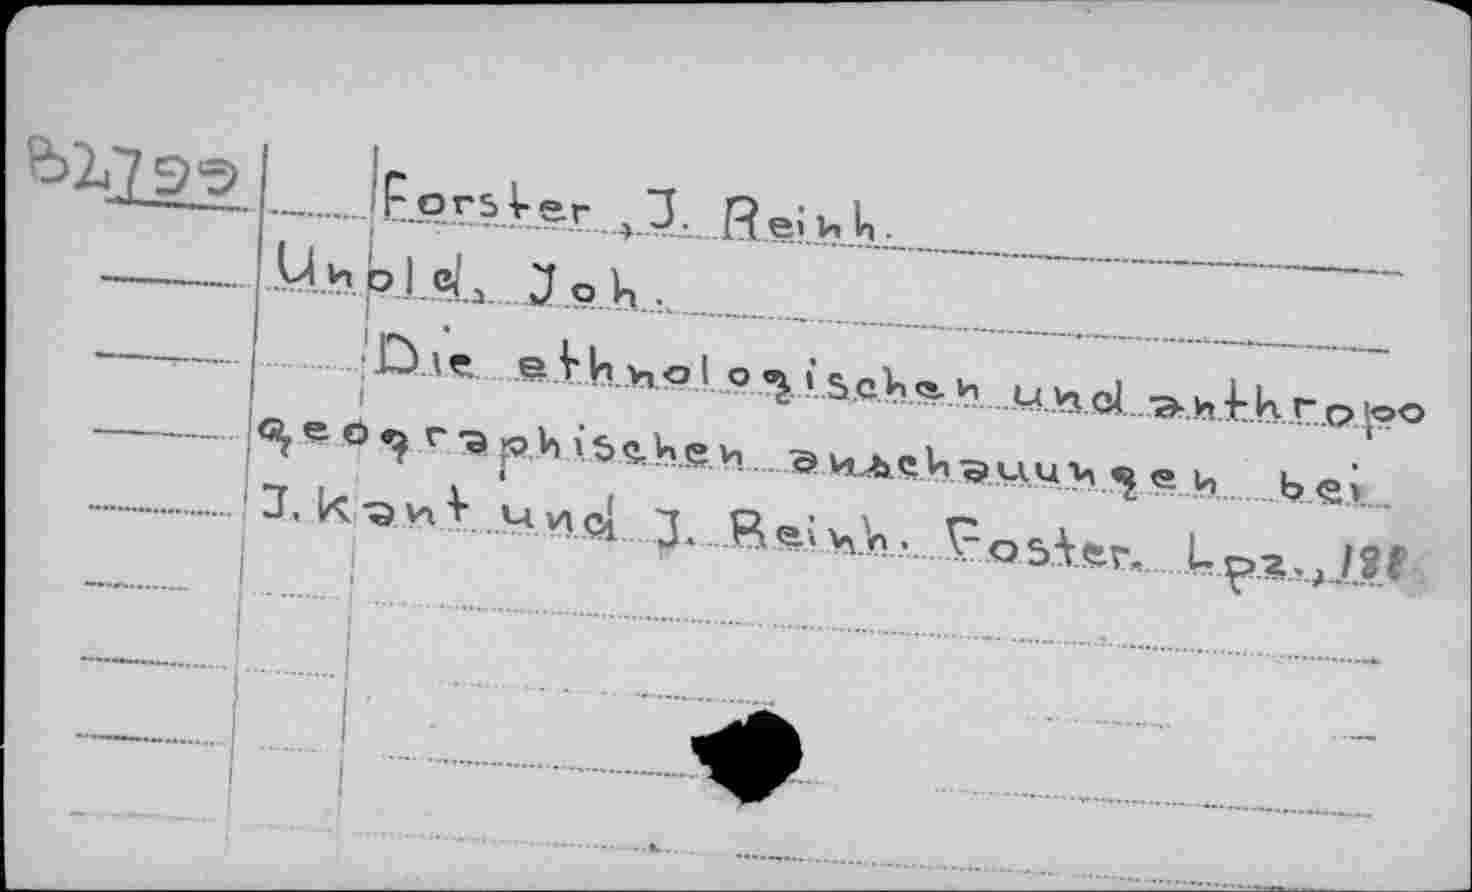 Forster, J. Reinh.
Unold, Joh.
Die ethnologischen und anthropo
geographischen anschauungen bei
J. Kant und J. Reinh. Foster. Lpz.,